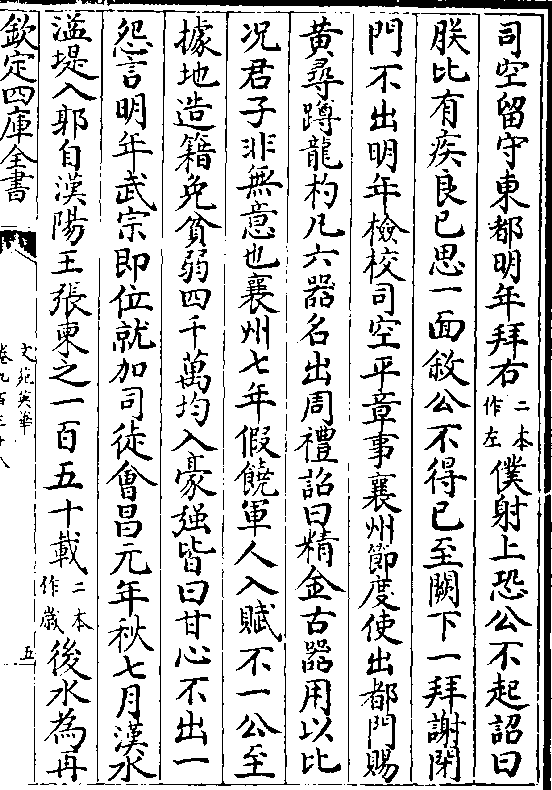 司空留守東都明年拜右二本作左僕射上恐公不起詔曰
朕比有疾良已思一面敘公不得已至闕下一拜謝閉
門不出明年檢校司空平章事襄州節度使出都門賜
黄尋蹲龍杓凡六器名出周禮詔曰精金古器用以比
况君子非無意也襄州七年假饒軍人入賦不一公至
據地造籍免貧弱四千萬均入豪强皆曰甘心不出一
怨言明年武宗即位就加司徒會昌元年秋七月漢水
溢堤入郭自漢陽王張柬之一百五十載二本作歲後水為再
欽定四庫全書
文苑英華
卷九百三十八
五